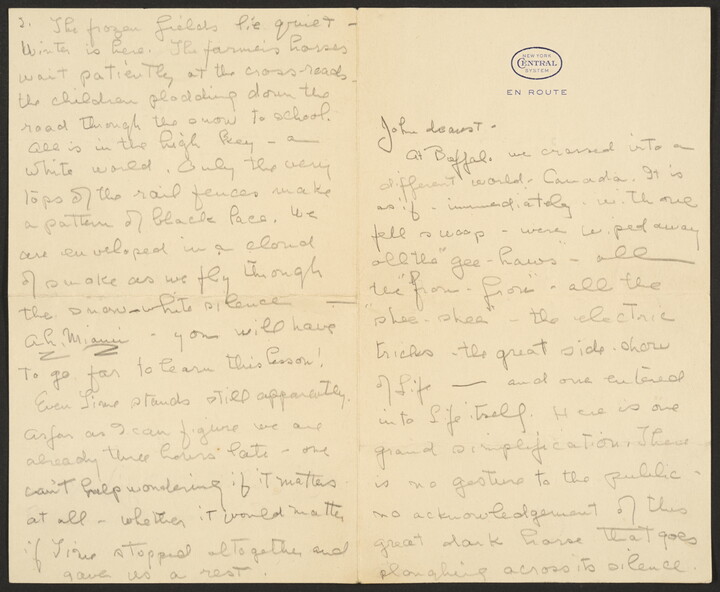 NEW YORK
CENTRAL
SYSTEM
EN ROUTE
John dearest -
At Buffalo we crossed into a
different world. Canada. It is
as if - immediately - with one
fell swoop - were wiped away
all the "gee-haws" - all
the "from - - all the
"shee-shee" - the electric
tricks - the great side-show
of Life — and one entered
into Life itself. Here is one
grand simplification. There
is no gesture to the public -
no acknowledgement of this
great dark horse that goes
ploughing across its silence.
2. The frozen fields lie quiet -
Winter is here. The farmer's horses
wait patiently at the cross-roads -
the children plodding down the
road through the snow to school.
All is in the high key - a
white world. Only the very
tops of the rail fences make
a pattern of black lace. We
are enveloped in a cloud
of smoke as we fly through
the snow-white silence —
Ah, Miami - you will have
to go far to learn this lesson!
Even Time stands still apparently.
As far as I can figure we are
already three hours late - one
can't help wondering if it matters
at all - whether it would matter
if Time stopped altogether and
gave us a rest.